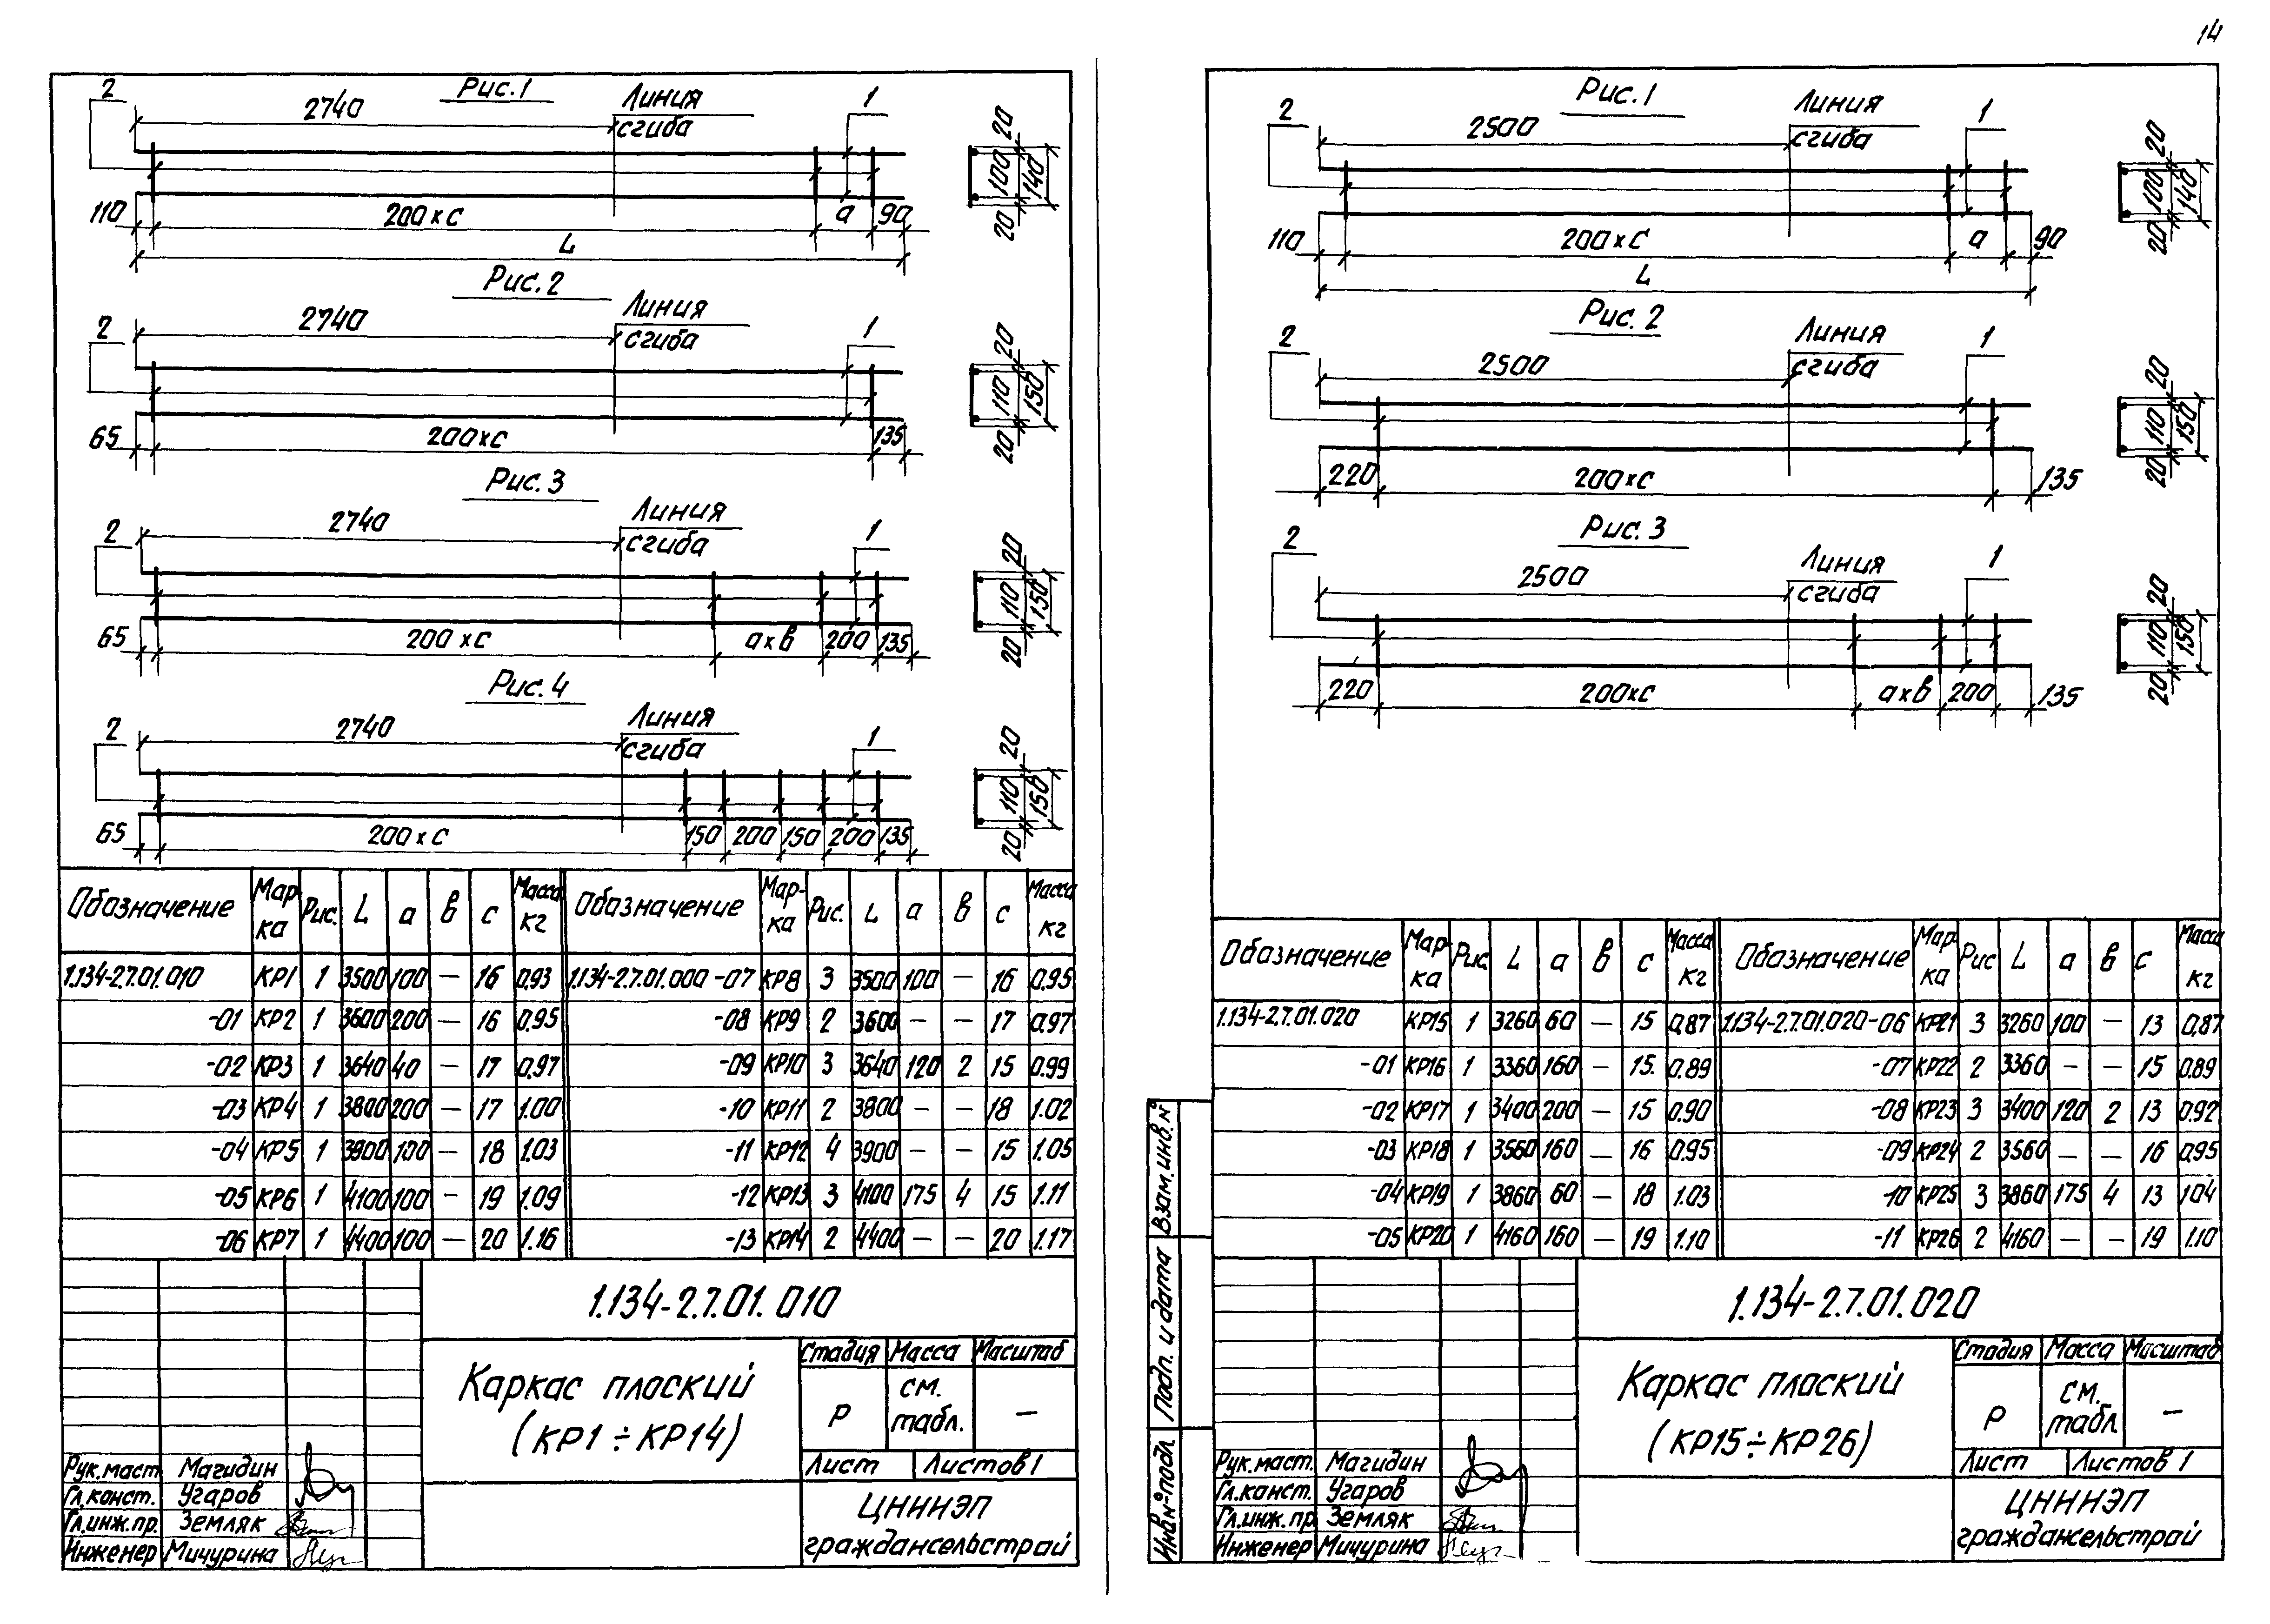 14
Рис. 1
2
2740
Линия
сгиба
1
20
100
140
20
110
200×с
а
90
L
Рис. 2
2
2740
Линия
сгиба
1
20
110
150
20
65
200×с
135
Рис. 3
2
2740
Линия
сгиба
1
20
110
150
20
65
200×с
а×в
200
135
Рис. 4
2
2740
Линия
сгиба
1
20
110
150
20
65
200×с
150
200
150
200
135
Обозначение Мар-ка Рис. L а в с Масса кг Обозначение Мар-ка Рис. L а в с Масса кг
1.134-2.7.01.010 КР1 1 3500 100 — 16 0.93 1.134-2.7.01.000 -07 КР8 3 3500 100 — 16 0.95
-01 КР2 1 3600 200 — 16 0.95 -08 КР9 2 3600 — — 17 0.97
-02 КР3 1 3640 40 — 17 0.97 -09 КР10 3 3640 120 2 15 0.99
-03 КР4 1 3800 200 — 17 1.00 -10 КР11 2 3800 — — 18 1.02
-04 КР5 1 3900 100 — 18 1.03 -11 КР12 4 3900 — — 15 1.05
-05 КР6 1 4100 100 — 19 1.09 -12 КР13 3 4100 175 4 15 1.11
-06 КР7 1 4400 100 — 20 1.16 -13 КР14 2 4400 — — 20 1.17
1.134-2.7.01.010
Каркас плоский
(КР1÷КР14)
Стадия Масса Масштаб
Р см. табл. —
Лист Листов 1
ЦНИИЭП
граждансельстрой
Рук.маст. Магидин
Гл.конст. Угаров
Гл.инж.пр. Земляк
Инженер Мичурина
Рис. 1
2
2500
Линия
сгиба
1
20
100
140
20
110
200×с
а
90
L
Рис. 2
2
2500
Линия
сгиба
1
20
110
150
20
220
200×с
135
Рис. 3
2
2500
Линия
сгиба
1
20
110
150
20
220
200×с
а×в
200
135
Обозначение Мар-ка Рис L а в с Масса кг Обозначение Мар-ка Рис L а в с Масса кг
1.134-2.7.01.020 КР15 1 3260 60 — 15 0,87 1.134-2.7.01.020-06 КР21 3 3260 100 — 13 0,87
-01 КР16 1 3360 160 — 15. 0.89 -07 КР22 2 3360 — — 15 0.89
-02 КР17 1 3400 200 — 15 0.90 -08 КР23 3 3400 120 2 13 0.92
-03 КР18 1 3560 160 — 16 0.95 -09 КР24 2 3560 — — 16 0.95
-04 КР19 1 3860 60 — 18 1.03 -10 КР25 3 3860 175 4 13 1.04
-05 КР20 1 4160 160 — 19 1.10 -11 КР26 2 4160 — — 19 1.10
1.134-2.7.01.020
Каркас плоский
(КР15÷КР26)
Стадия Масса Масштаб
Р см. табл. —
Лист Листов 1
ЦНИИЭП
граждансельстрой
Рук.маст. Магидин
Гл.конст. Угаров
Гл.инж.пр Земляк
Инженер Мичурина
Взам. инв. №
Подп. и дата
Инв.№подл.